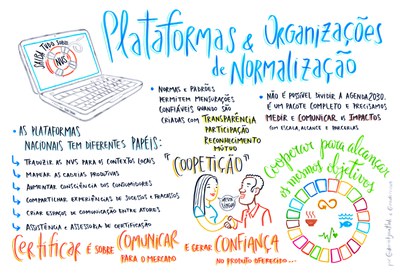 Plataformas & Organizações
de Normalização
SAIBA TUDO SOBRE
NVS
• NORMAS e PADRÕES
PERMITEM MENSURAÇÕES
CONFIÁVEIS QUANDO SÃO
CRIADAS COM TRANSPARÊNCIA
PARTICIPAÇÃO
RECONHECIMENTO
MÚTUO
• NÃO É POSSÍVEL DIVIDIR A AGENDA 2030.
É UM PACOTE COMPLETO E PRECISAMOS
MEDIR e COMUNICAR OS IMPACTOS
COM ESCALA, ALCANCE e PARCERIAS
• AS PLATAFORMAS
NACIONAIS TEM DIFERENTES PAPÉIS:
TRADUZIR AS NVS PARA OS CONTEXTOS LOCAIS
MAPEAR AS CADEIAS PRODUTIVAS
AUMENTAR CONSCIÊNCIA DOS CONSUMIDORES
COMPARTILHAR EXPERIÊNCIAS DE SUCESSOS e FRACASSOS
CRIAR ESPAÇOS DE COMUNICAÇÃO ENTRE ATORES
ASSISTÊNCIA e ASSESSORIA DE CERTIFICAÇÃO
"COOPETIÇÃO"
Cooperar para alcançar
os mesmos objetivos
Certificar É SOBRE COMUNICAR
PARA O MERCADO
E GERAR CONFIANÇA
NO PRODUTO OFERECIDO...